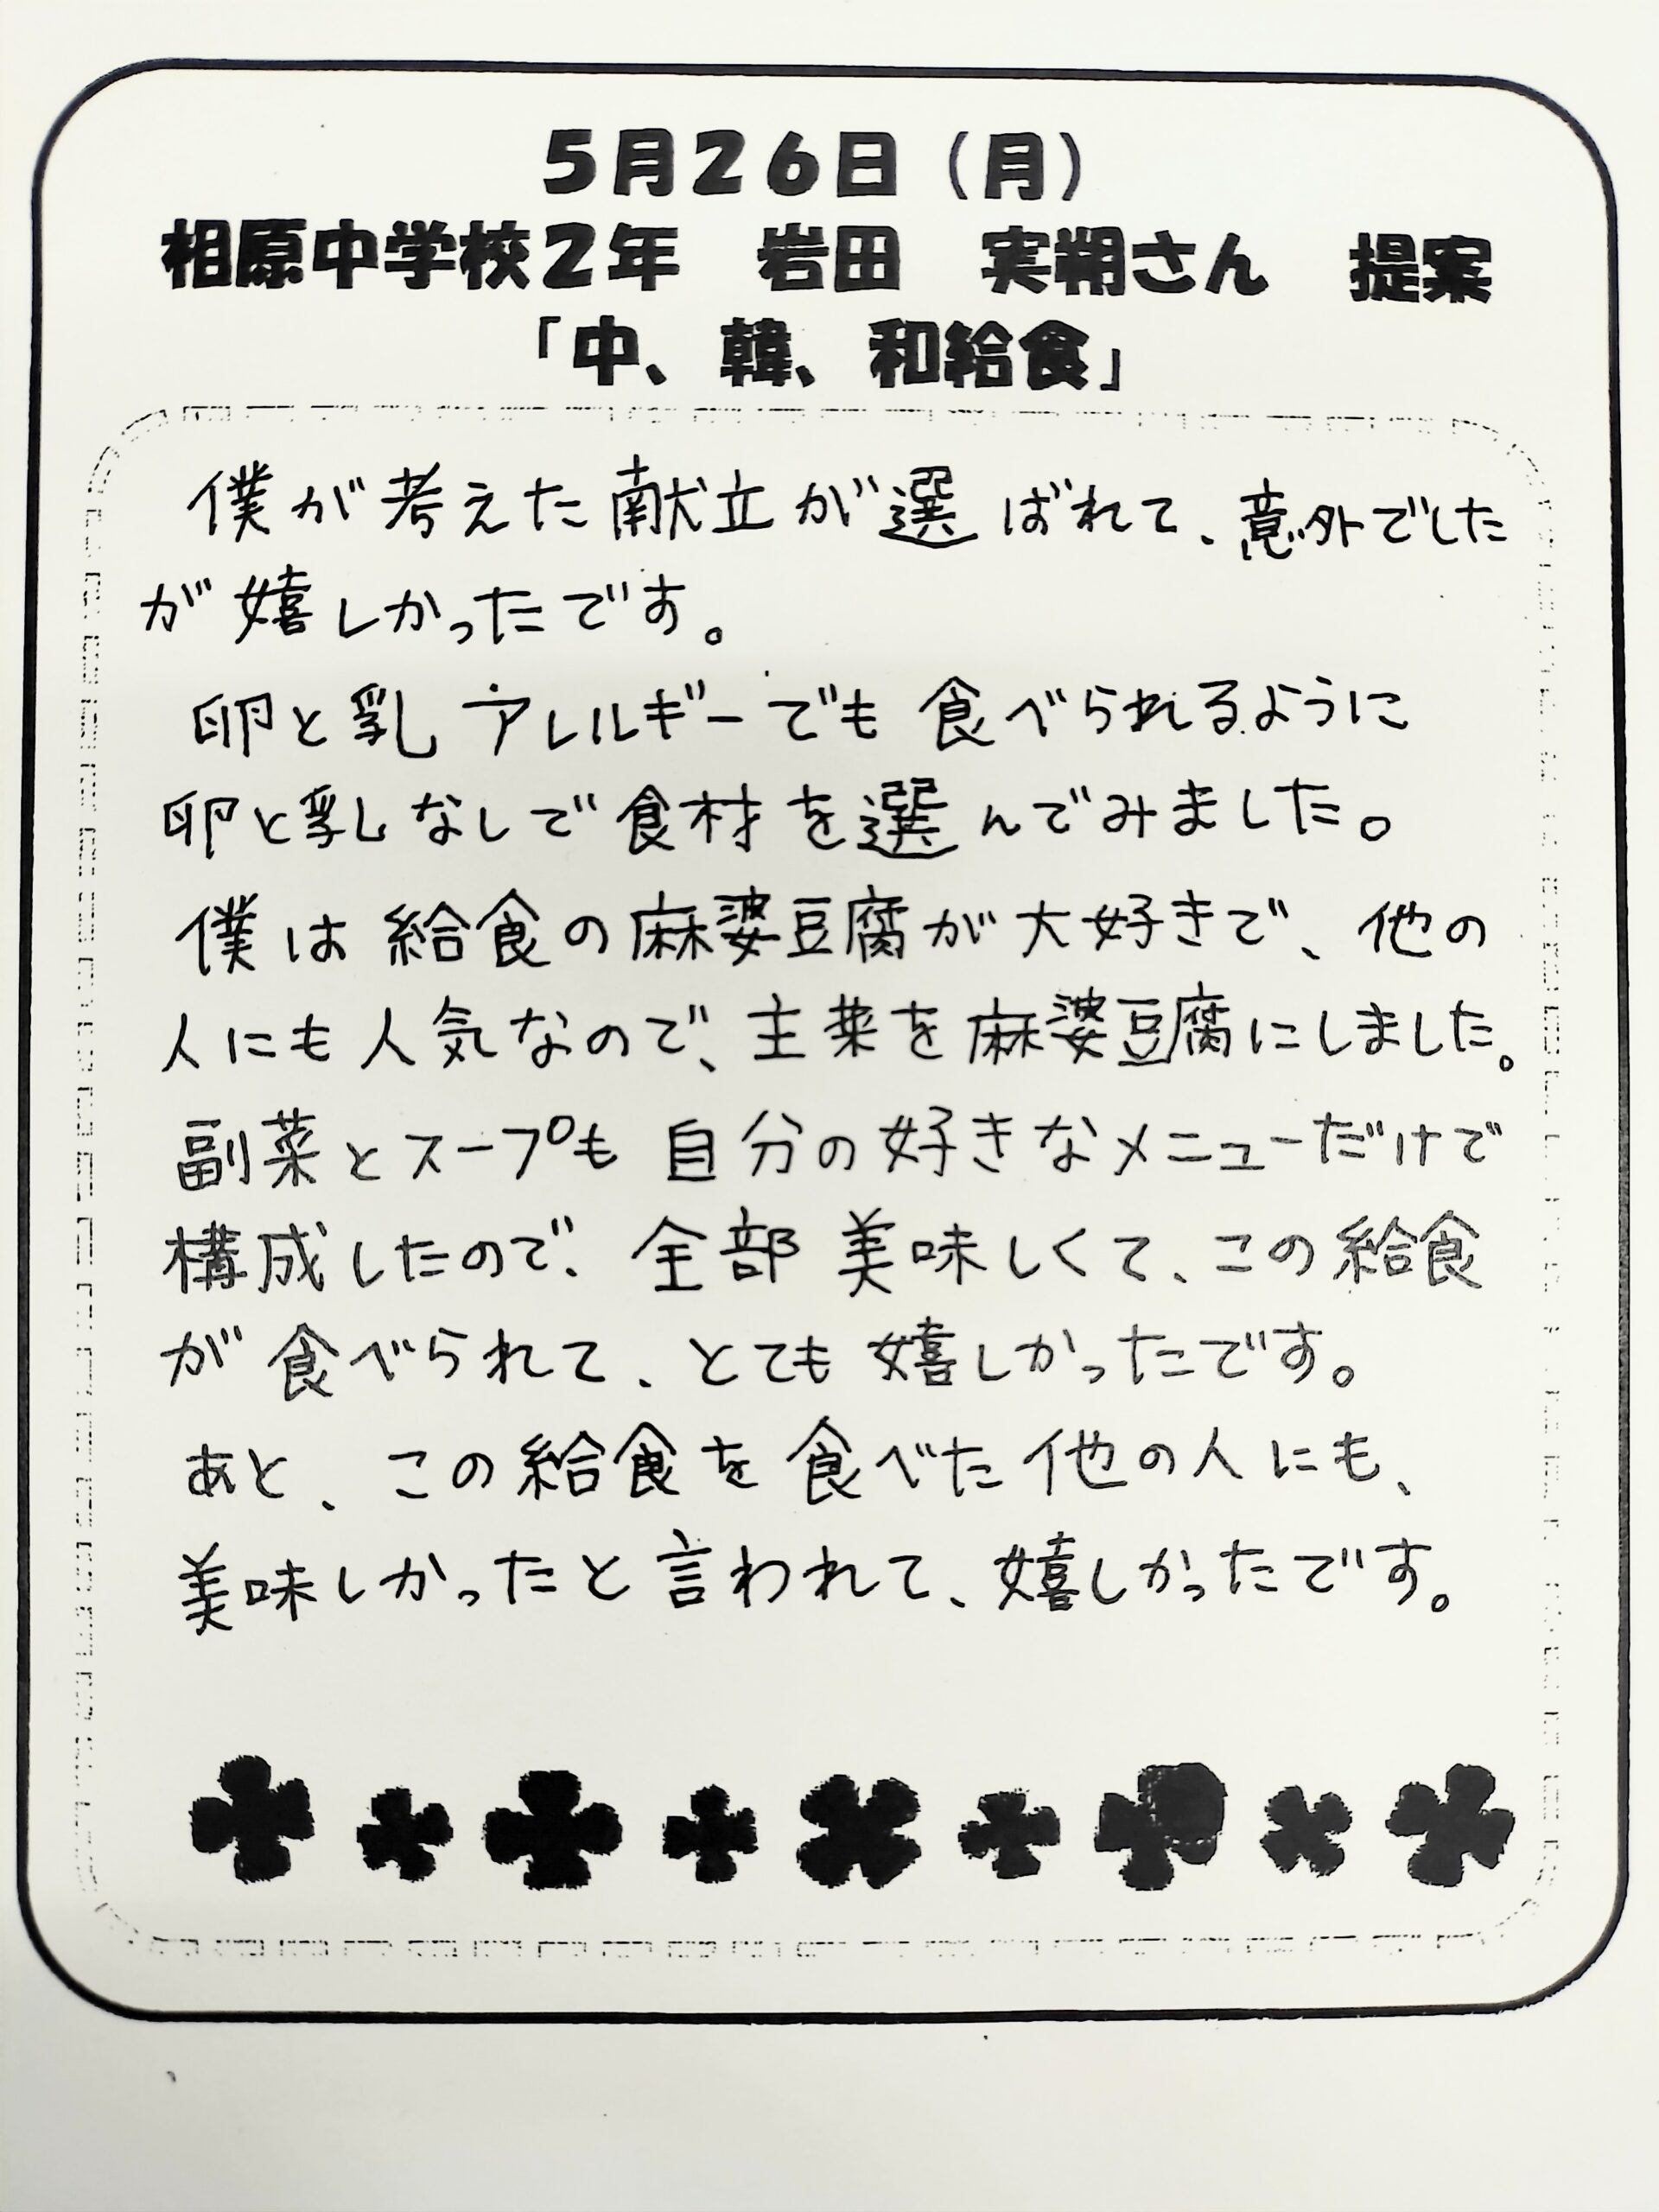 5月26日（月）
相原中学校2年　岩田　実朔さん　提案
「中、韓、和給食」
僕が考えた献立が選ばれて、意外でした
が嬉しかったです。
卵と乳アレルギーでも食べられるように
卵と乳なしで食材を選んでみました。
僕は給食の麻婆豆腐が大好きで、他の
人にも人気なので、主菜を麻婆豆腐にしました。
副菜とスープも自分の好きなメニューだけで
構成したので、全部美味しくて、この給食
が食べられて、とても嬉しかったです。
あと、この給食を食べた他の人にも、
美味しかったと言われて、嬉しかったです。